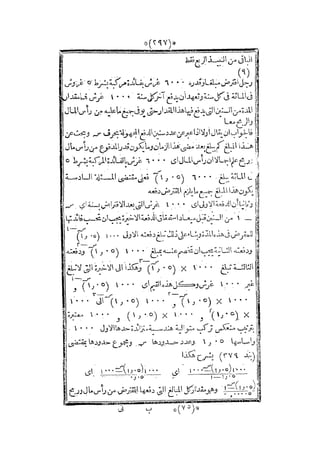 *(٢٩٧)*
الباقى من النبيذ الربع فقط
(٩)
رجل اقترض مبلغا وقدره ٦٠٠٠ غرش بفائدة مركبة بشرط ٥ غروش
فى المائة فى كل سنة وتعهد أن يدفع آخر كل سنة ١٠٠٠ غرش فما مقدار
المدة من السنين التى يدفع فيها هذا القدر حتى يوفى جميع ما عليه من رأس المال
والربح معا
فالجواب أن يقال اولا اذا عبر عن عدد سنين الدفع المجهولة بحرف س وبحث عن
هذا المبلغ كم يبلغ بعد مضى هذا الزمان وما يكون قدر المدفوع من رأس مال
وربح علم اجمالا ان رأس المال اى ٦٠٠٠ غرش بالفائدة المركبة بشرط ٥
فى المائة يبلغ ٦٠٠٠ (١,٠٥)^س فعلى مقتضى المسئلة السادسة
يكون هذا المبلغ جميع ما يلزم المقترض دفعه
وثانيا أن الدفعة الاولى اى ١٠٠٠ غرش التى بعد الاقتراض بسنة اى س
– ١ من السنين قبل ميعاد استحقاق الدفعة الاخيرة يجب ان تحسب فائدتها
للمقترض فى هذه المدة وبناء على ذلك تبلغ دفعته الاولى ١٠٠٠ (١,٠٥)^س-١
ودفعته الثانية يجب ان تخصم عنه بمبلغ ١٠٠٠ (١,٠٥)^س-٢ ودفعته
الثالثة بمبلغ ١٠٠٠ × (١,٠٥)^س-٣ وهكذا الى الاخيرة التى لا تبلغ
غير ١٠٠٠ غرش وكل هذه القيم اى ١٠٠٠ (١,٠٥)^س-١ و
١٠٠٠ × (١,٠٥)^س-٢ و ١٠٠٠ (١,٠٥)^س-٣ الى ١٠٠٠
× (١,٠٥)^٢ و ١٠٠٠ × (١,٠٥) و ١٠٠٠ معتبرة
بترتيب منعكس تركب متوالية هندسية متزائدة حدها الاول ١٠٠٠
واساسها ١,٠٥ وعدد حدودها س ومجموع حدودها بمقتضى
(بند ٣٧٩) يشرح هكذا
وهو مقدار كل المبالغ التى دفعها المقترض من رأس مال وربح
*(٧٥)* ب نى